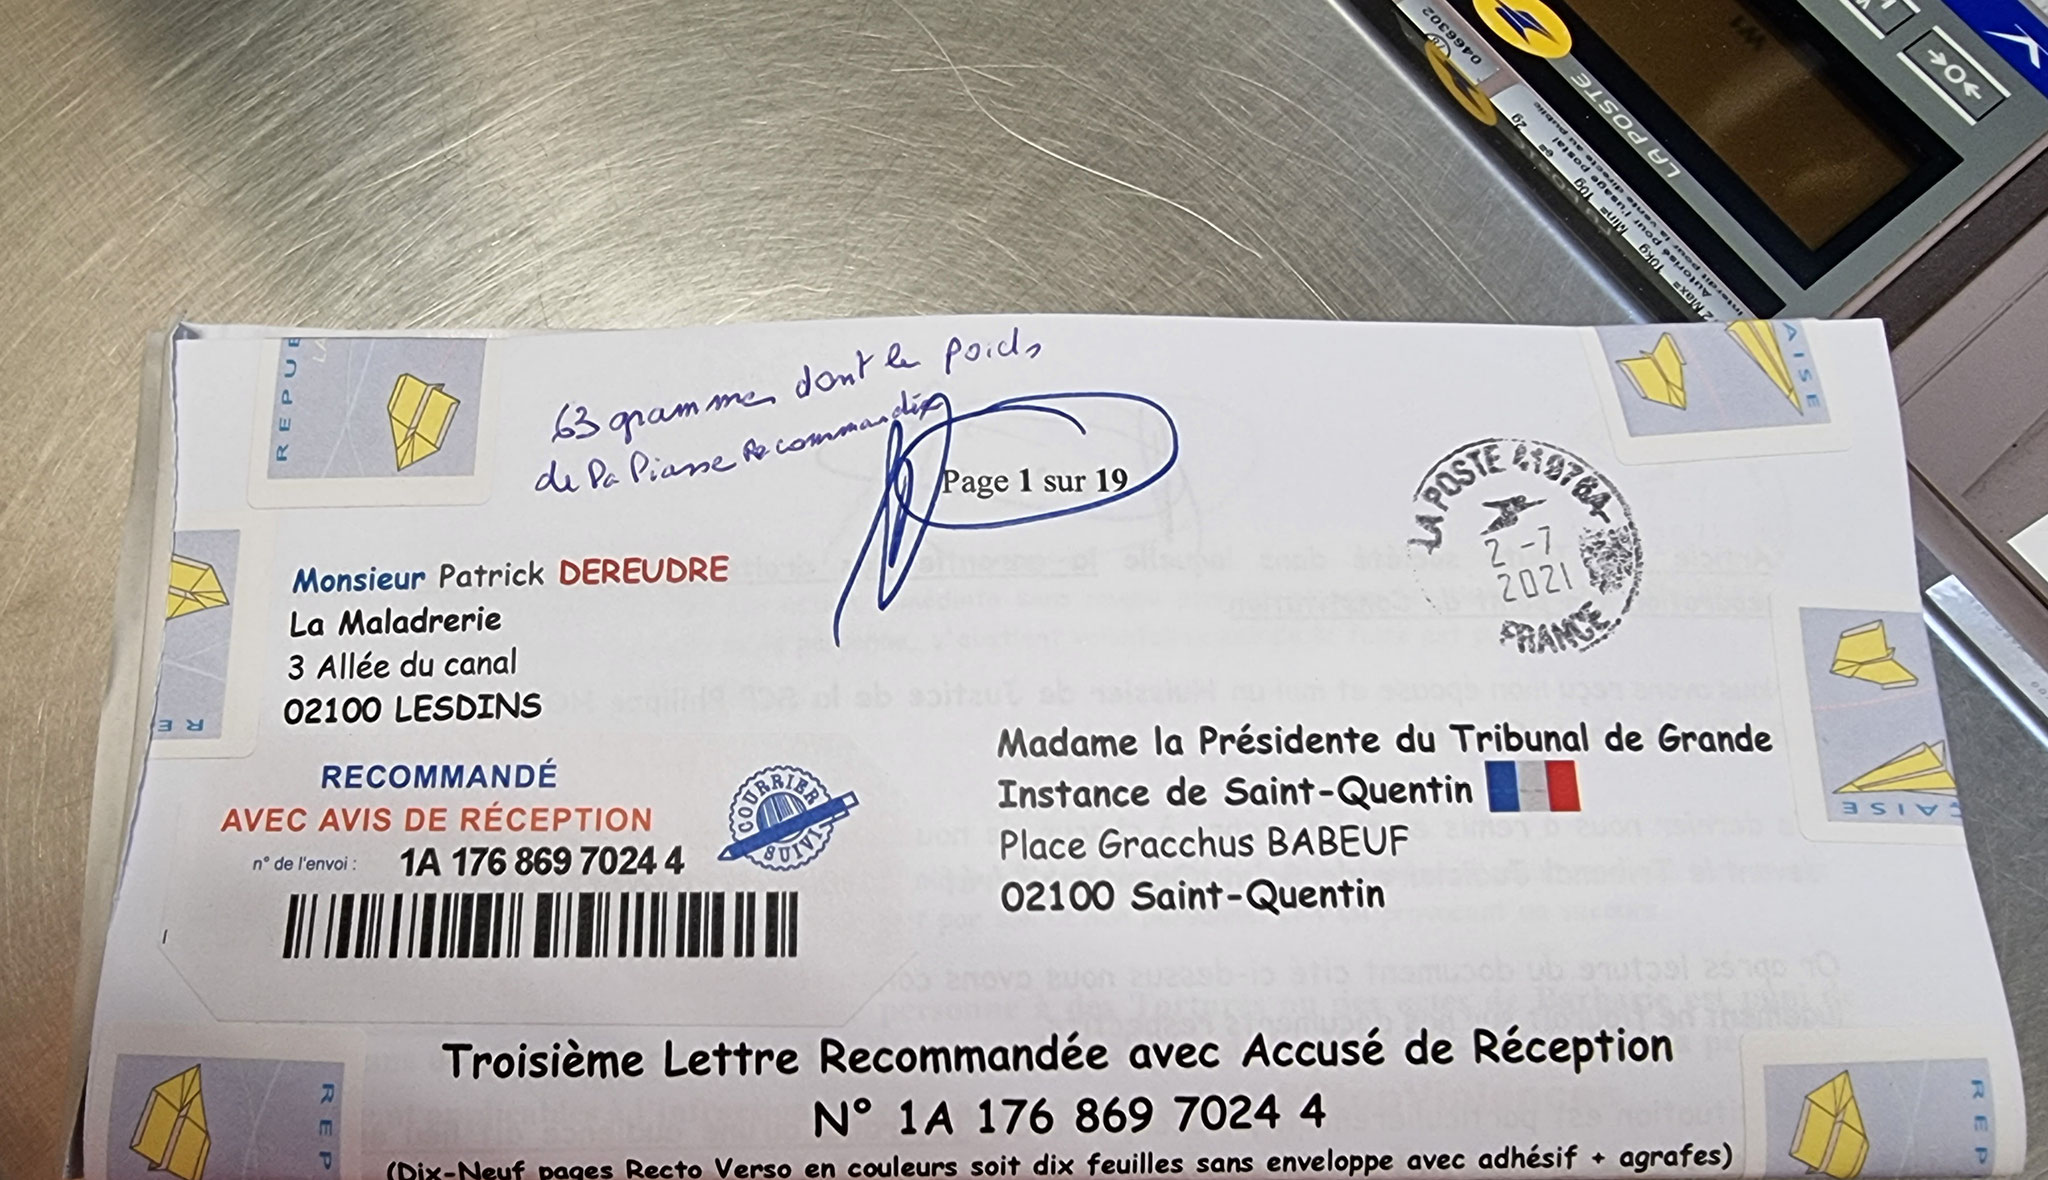 0466302
LA POSTE
→0←
63 grammes dont le poids
de la liasse Recommandée
Page 1 sur 19
LA POSTE 41978A
2-7
2021
FRANCE
Monsieur Patrick DEREUDRE
La Maladrerie
3 Allée du canal
02100 LESDINS
RECOMMANDÉ
AVEC AVIS DE RÉCEPTION
n° de l'envoi : 1A 176 869 7024 4
COURRIER SUIVI
Madame la Présidente du Tribunal de Grande
Instance de Saint-Quentin
Place Gracchus BABEUF
02100 Saint-Quentin
Troisième Lettre Recommandée avec Accusé de Réception
N° 1A 176 869 7024 4
(Dix-Neuf pages Recto Verso en couleurs soit dix feuilles sans enveloppe avec adhésif + agrafes)